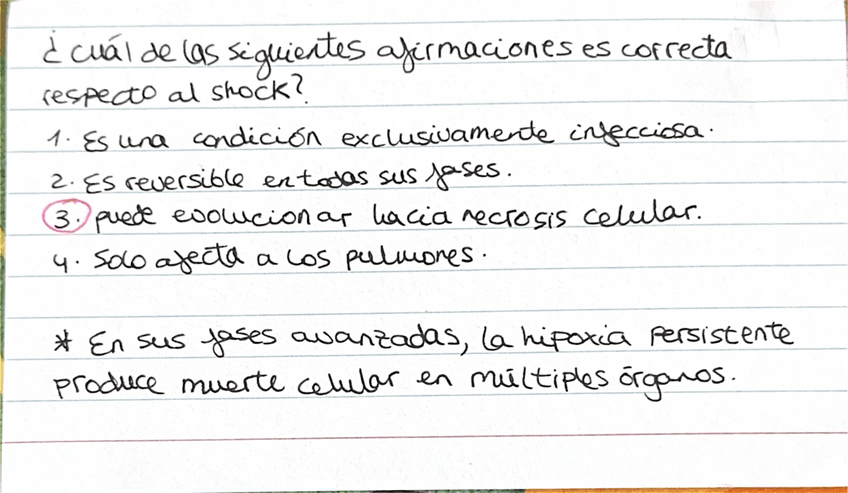 ¿cuál de las siguientes afirmaciones es correcta
respecto al shock?
1. Es una condición exclusivamente infecciosa.
2. Es reversible en todas sus fases.
3. puede evolucionar hacia necrosis celular.
4. Solo afecta a los pulmones.
* En sus fases avanzadas, la hipoxia persistente
produce muerte celular en múltiples órganos.